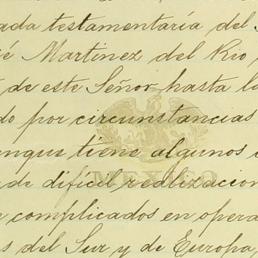 ada testamentaría del S
é Martinez del Rio,
de este Señor hasta la
do por circunstancias
unque tiene algunos
de dificil realizacion
complicados en opera
s del Sur y de Europa,
MEXICO